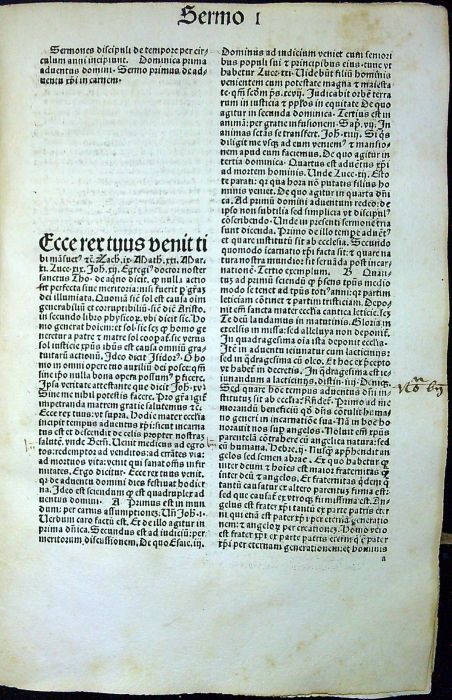 Sermo I
Sermones discipuli de tempore per cir
culum anni incipiunt. Dominica prima
aduentus domini. Sermo primus de ad⸗
uentu xp̄i in carnem.
Ecce rex tuus venit ti
bi māsuet⁹ ⁊c̄. Zach. ix. Math. xxi. Mar.
xi. Luc. xix. Joh. xij. Egregi⁹ doctor noster
sanctus Tho. de aq̄no dicit. ꝙ nulla actio
fit perfecta siue meritoria: nisi fuerit ꝑ graȝ
dei illuminata. Quomā sic̄ sol est causa oīm
generabiliū et corruptibiliū: sic̄ dic̄ Aristo.
in secundo libro phisicoꝝ. vbi dicit sic. Ho
mo generat hoīem: et sol: sic seꝫ ꝙ homo ge
neretur a patre ⁊ matre sol coopaꝉ. sic verus
sol iusticie xp̄us ip̄us est causa omniū gra⸗
tuitarū actionū. Ideo dicit Isidor⁹. O ho
mo in omni opere tuo auxiliū dei posce: qm̄
sine ip̄o nulla bona opera possum⁹ ꝑficere.
Ipsa veritate attestante que dicit Joh. xv.
Sine me nihil potestis facere. Pro gr̄a igit̄
impetranda matrem gratie salutemus ⁊c̄.
Ecce rex tuus: vt supra. Hodie mater eccl̄ia
incipit tempus aduentus xp̄i: sicut incarna
tus est et descendit de celis propter nostraȝ
salutē. vnde Bern̄. Uenit medicus ad egro
tos: redemptor ad venditos: ad errātes via:
ad mortuos vita: venit qui sanat oēs infir⸗
mitates. Ergo dicitur Ecce rex tuus venit.
qꝛ de aduentu domini dies festiuat hodier
na. Ideo est sciendum ꝙ est quadruplex ad
uentus domini. A Primus est in mun
dum: per carnis assumptiones. Un̄ Joh. i.
Uerbum caro factū est. Et de illo agitur in
prima dn̄ica. Secundus est ad iudiciū: per
meritorum discussionem. De quo Esaie. iij.
Dominus ad iudicium veniet cum seniori
bus populi sui ⁊ principibus eius. tunc vt
habetur Luce. xxi. Uidebūt filiū hominis
venientem cum potestate magna ⁊ maiesta
te. qm̄ scōm ps̄. xcvij. Judicabit orbē terra
rum in iusticia ⁊ pp̄los in equitate De quo
agitur in secunda dominica. Tertius est in
animā: per gratie infusionem. Sap̄. vij. In
animas sct̄as se transfert. Joh. xiiij. Si q̄s
diligit me vsq̨ ad eum veniem⁹ ⁊ mansio⸗
nem apud eum faciemus. De quo agitur in
tertia dominica. Quartus est aduentꝰ xp̄i
ad mortem hominis. Unde Luce. xij. Esto
te parati: qꝛ qua hora nō putatis filius ho
minis veniet. De quo agitur in quarta dn̄i
ca. Ad primū domini aduentum redeo: de
ipso non subtilia sed simplicia vt discipul⁹
cōscribendo. Unde in presenti sermone tria
sunt dicenda. Primo de illo tempe aduēt⁹
et quare institutū sit ab ecclesia. Secundo
quomodo incarnatio xp̄i facta sit: ⁊ quare na
tura nostra mundior sit seruāda post incar⸗
nationē. Tertio exemplum. B Quan⸗
tuȝ ad primū sciendū ꝙ p̄sens tp̄us medio
modo se tenet ad tp̄us totꝰ anni: qꝛ partim
leticiam cōtinet ⁊ partim tristiciam. Depo⸗
nit em̄ sancta mater ecclesia cantica leticie. seꝫ
Te deū laudamus in matutinis. Gloria in
excelsis in missa: sed alleluya non deponit̄.
In quadragesima oīa ista deponit ecclesia.
Itē in aduentu ieiunatur cum lacticiniis:
sed in qdragesima cū oleo. Et hoc ex ꝑcepto
vt habet̄ in decretis. In qdragesima est ie
iunandum a lacticinijs. distin. iiij. Deniq̨.
Sed quare hoc tempus aduentus dn̄i in⸗
stitutus sit ab ecclesia: Rn̄det̄. Primo ad me
morandū beneficiū qd̄ dn̄s cōtulit huma⸗
no generi in incarnatiōe sua. Nā in hoc ho
norauit nos sup̄ angelos. Noluit em̄ xp̄us
parentelā cōtrahere cū angelica natura: sed
cū humana. Hebre. ij. Nusq̄ app̄hendit an
gelos sed semen abrae. Et quo habetur ꝙ
inter deum ⁊ hoīes est maior fraternitas ꝙ
inter deū ⁊ angelos. Et fraternitas qdē ꝙ
tantū causatur ex altero parentuȝ firma est:
sed que causat̄ ex vtroq̨ firmissima est. An⸗
gelus est frater xp̄i tantū ex parte patris etr̄
ni qui etiā est pater xp̄i ꝑ eternā generatio
nem: ⁊ angeloꝝ per creationeȝ. Homo vero
est frater xp̄i ex parte patris eterni q̄ ē pater
xp̄i per eternum generationem: et hominis
a